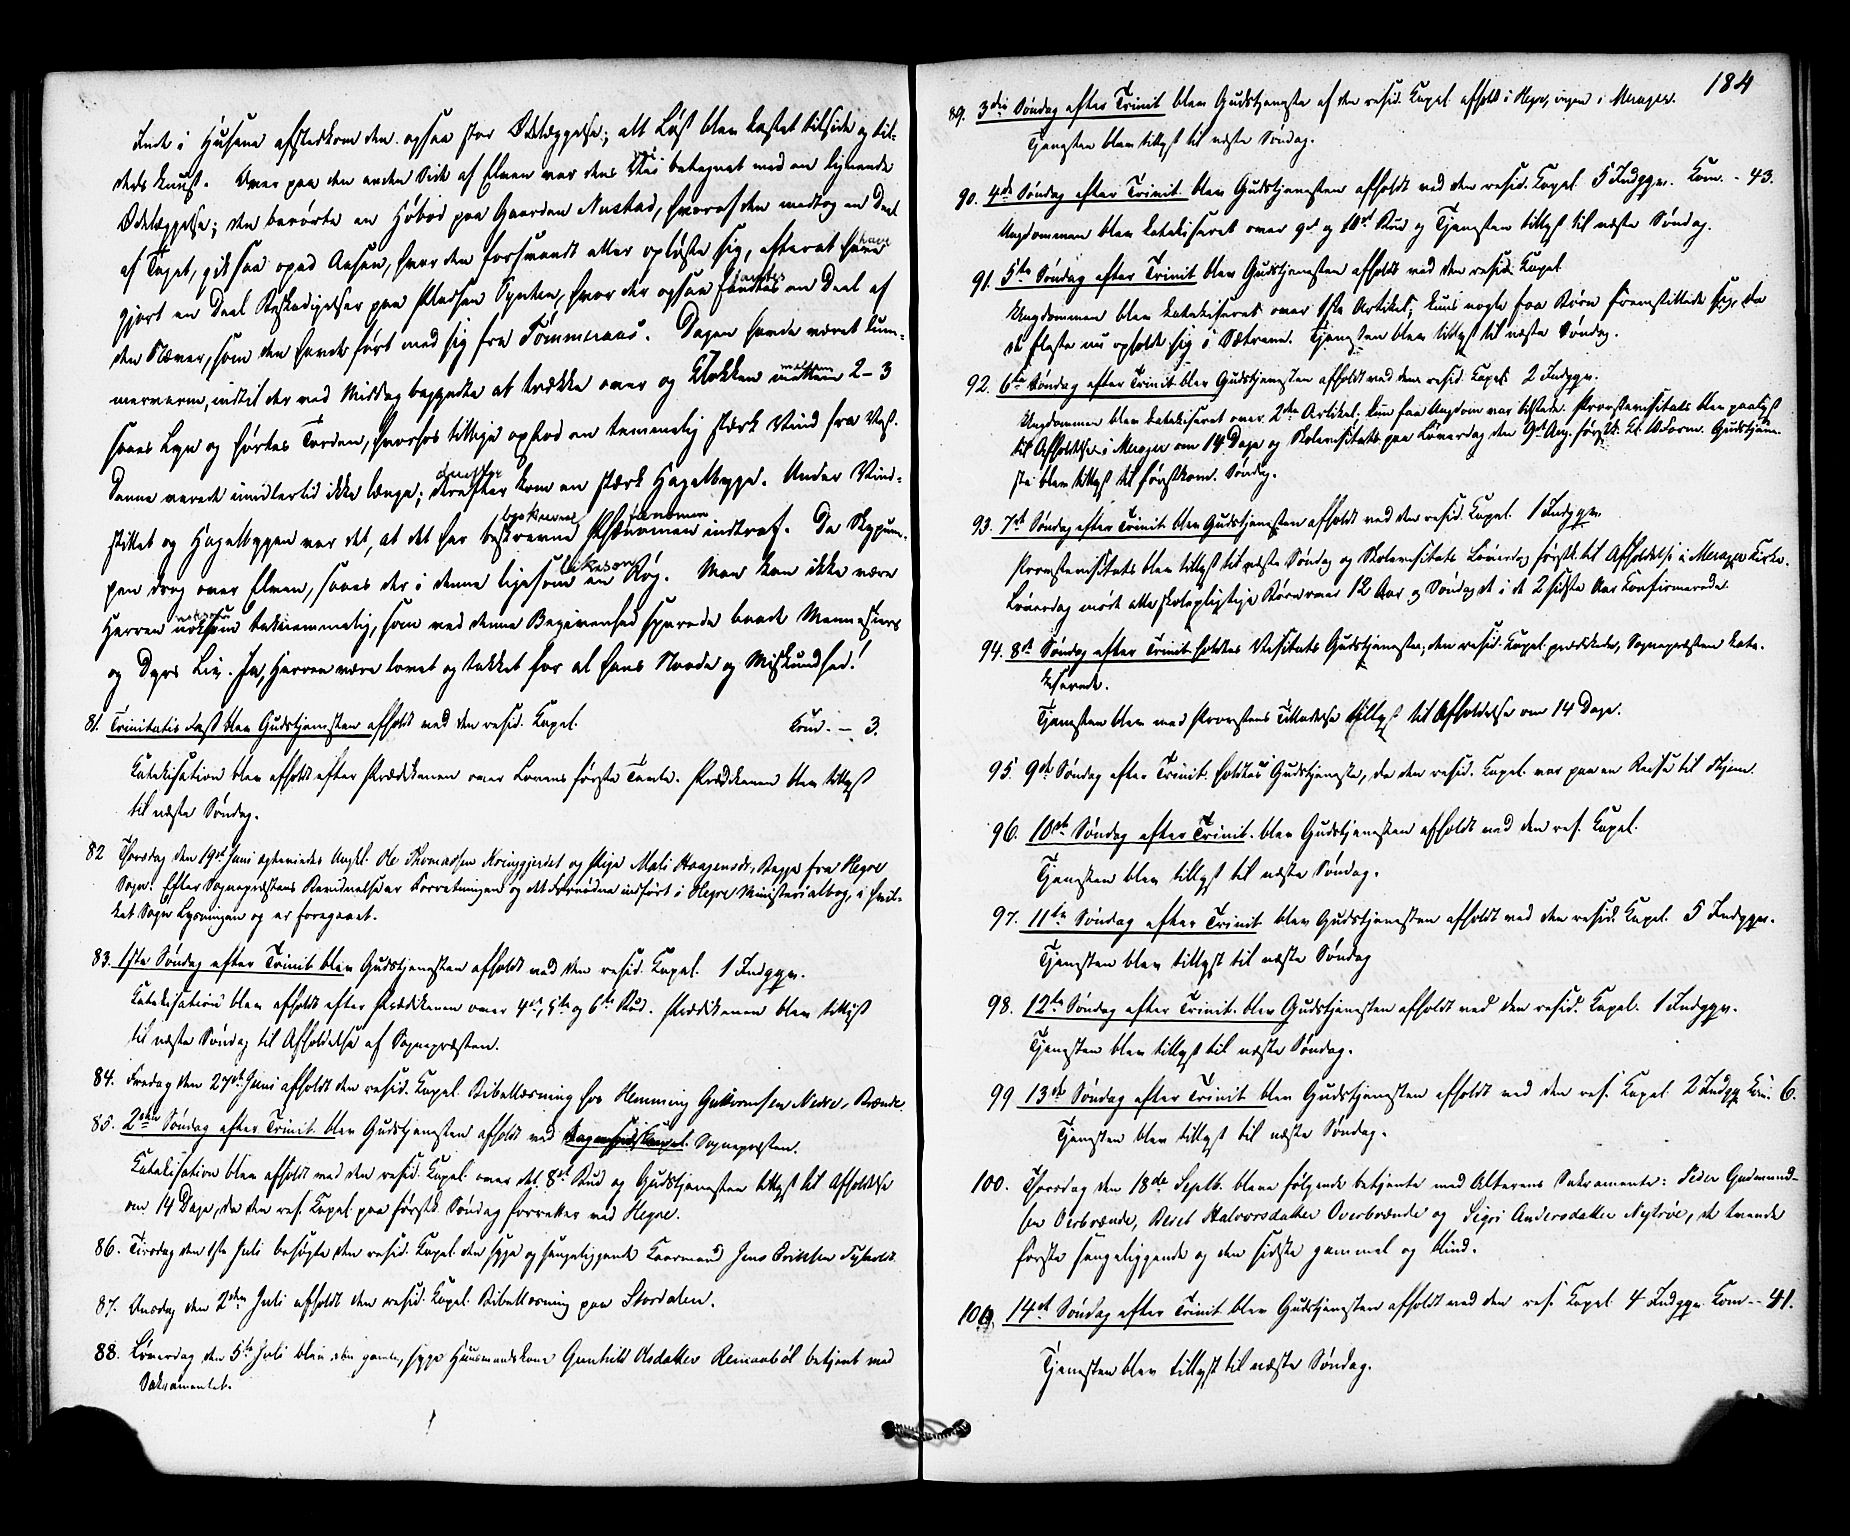 Inde i Husene afstedkom den ogsaa stor Ødelæggelse; alt Løst blev kastet tilside og til-
deels knust. Over paa den anden Side af Elven var dens Vei betegnet med en lignende
Ødelæggelse; den berørte en Høbod paa Gaarden Nustad, hvoraf den medtog en Deel
af Taget, gik saa opad Aasen, hvor den forsvandt eller opløste sig, efterat have
gjort en Deel Beskadigelser paa Pladsen Synken, hvor der ogsaa fandtes en Deel af
den Næver, som den havde ført med sig fra Tømmeraas. Dagen havde været lum-
mervarm, indtil der ved Middag begyndte at trække over og Klokken mellem 2-3
saaes Lyn og hørtes Torden, hvorhos tillige opstod en temmelig stærk Vind fra Vest.
Denne varede imidlertid ikke længe; derefter kom en stærk Hagelbyge. Under Vind-
stillet og Hagelbygen var det, at det her beskrevne Phænomen indtraf. Da Skypum-
pen drog over Elven, saaes der i denne ligesom en Røg. Man kan ikke være
Herren noksom taknemmelig, som ved denne Begivenhed sparede baade Menneskers
og Dyrs Liv. Ja, Herren være lovet og takket for al hans Naade og Miskundhed!
81. Trinitatis Fest blev Gudstjenesten afholdt ved den resid. Kapel. Kom. - 3.
Katekisation blev afholdt efter Prædikenen over Lovens første Tavle. Prædikenen blev tillyst
til næste Søndag.
82 Thorsdag den 19de Juni ægteviedes Ungk. Ole Thomassen Kringgjerdet og Pige Mali Haagensdr. Reppe fra Hegre
Sogn. Efter Sognepræstens Bemyndigelse er Forretningen og det Fornødne indført i Hegre Ministerialbog, i hvil-
ket Sogn Lysningen og er foregaaet.
83. 1ste Søndag efter Trinit. blev Gudstjenesten afholdt ved den resid. Kapel. 1 Indggv.
Katekisation blev afholdt efter Prædikenen over 4de, 5te og 6te Bud. Prædikenen blev tillyst
til næste Søndag til Afholdelse af Sognepræsten.
84. Fredag den 27de Juni afholdt den resid. Kapel. Bibellæsning hos Hemming Guttormsen Nedre-Brænde.
85. 2den Søndag efter Trinit. blev Gudstjenesten afholdt ved Sognepræsten.
Katekisation blev afholdt ved den resid. Kapel. over det 8de Bud og Gudstjenesten tillyst til Afholdelse
om 14 Dage, da den res. Kapel. paa førstk. Søndag forretter ved Hegre.
86. Tirsdag den 1ste Juli besøgte den resid. Kapel. den syge og sengeliggende Kaarmand Jens Eriksen Fusholt.
87. Onsdag den 2den Juli afholdt den resid. Kapel. Bibellæsning paa Stordalen.
88. Løverdag den 5te Juli blev den gamle, syge Huusmandskone Gunhild Olsdatter Reinaabøl betjent med
Sakramentet.
184
89. 3die Søndag efter Trinit. blev Gudstjeneste af den resid. Kapel. afholdt i Hegre, ingen i Merager.
Tjenesten blev tillyst til næste Søndag.
90. 4de Søndag efter Trinit. blev Gudstjenesten afholdt ved den resid. Kapel. 5 Indggv. Kom. - 43.
Ungdommen blev katekiseret over 9de og 10de Bud og Tjenesten tillyst til næste Søndag.
91. 5te Søndag efter Trinit. blev Gudstjenesten afholdt ved den resid. Kapel.
Ungdommen blev katekiseret over 1ste Artikel; kuns nogle faa Børn fremstillede sig, da
de fleste nu opholdt sig i Sætrene. Tjenesten blev tillyst til næste Søndag.
92. 6te Søndag efter Trinit. blev Gudstjenesten afholdt ved den resid. Kapel. 2 Indggv.
Ungdommen blev katekiseret over 2den Artikel; kun faa Ungdom var tilstede. Provstevisitats blev paalyst
til Afholdelse i Merager om 14 Dage og Skolevisitats paa Løverdag den 9de Aug. førstk. Kl. 10 Form. Gudstjene-
ste blev tillyst til førstkom. Søndag.
93. 7de Søndag efter Trinit. blev Gudstjenesten afholdt ved den resid. Kapel. 1 Indggv.
Provstevisitats blev tillyst til næste Søndag og Skolevisitats Løverdag førstk. til Afholdelse i Merager Kirke.
Løverdag mødt alle skolepligtige Børn over 12 Aar og Søndag de i de 2 sidste Aar Konfirmerede.
94. 8de Søndag efter Trinit. holdtes Visitats Gudstjeneste; den resid. Kapel. prædikede, Sognepræsten kate-
kiserede.
Tjenesten blev med Provstens Tilladelse tillyst til Afholdelse om 14 Dage.
95. 9de Søndag efter Trinit. holdtes Gudstjeneste, da den resid. Kapel. var paa en Reise til Hjem.
96. 10de Søndag efter Trinit. blev Gudstjenesten afholdt ved den res. Kapel.
Tjenesten blev tillyst til næste Søndag.
97. 11te Søndag efter Trinit. blev Gudstjenesten afholdt ved den resid. Kapel. 5 Indggv.
Tjenesten blev tillyst til næste Søndag
98. 12te Søndag efter Trinit. blev Gudstjenesten afholdt ved den resid. Kapel. 1 Indggv.
Tjenesten blev tillyst til næste Søndag.
99 13de Søndag efter Trinit. blev Gudstjenesten afholdt ved den res. Kapel. 2 Indgg. Kom. 6.
Tjenesten blev tillyst til næste Søndag.
100. Thorsdag den 18de Septb. bleve følgende betjente med Alterens Sakramente: Peder Gudmund-
sen Overbrænde, Beret Halvorsdatter Overbrænde og Sigri Andersdatter Nystrøe, de tvende
første sengeliggende og den sidste gammel og blind.
100. 14de Søndag efter Trinit. blev Gudstjenesten afholdt ved den res. Kapel. 4 Indggv. Kom. - 41.
Tjenesten blev tillyst til næste Søndag.